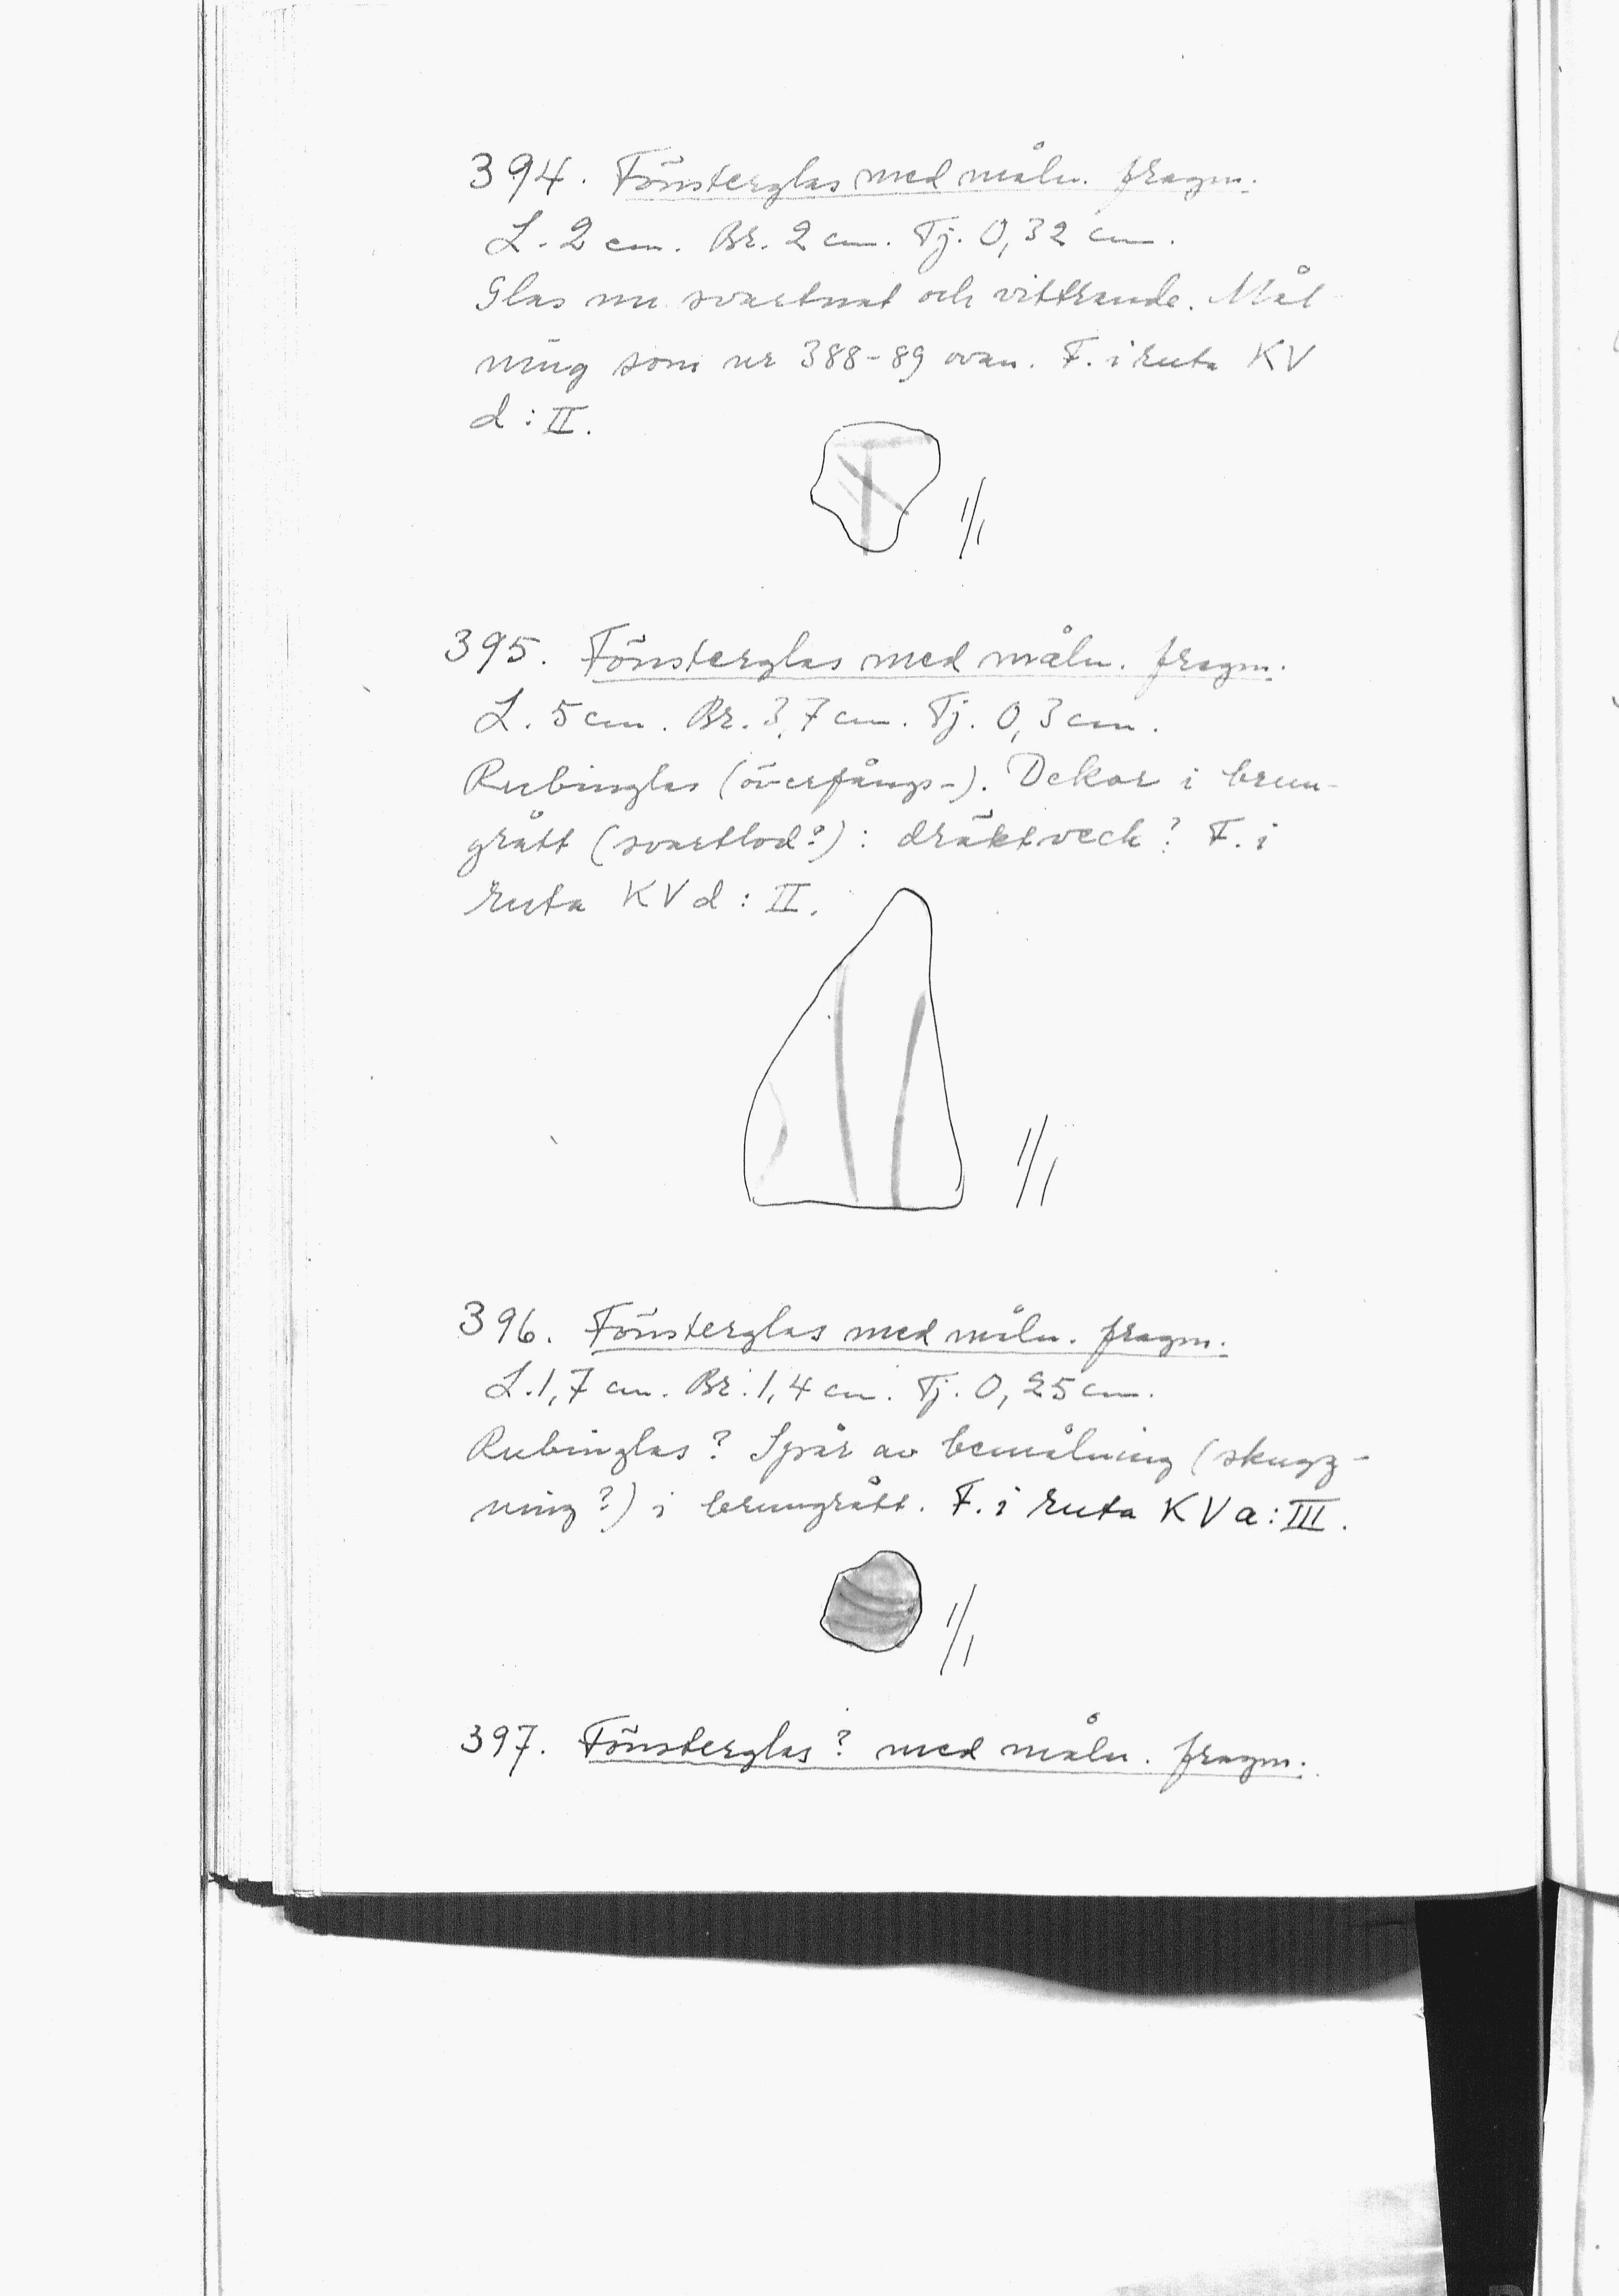 394. Fönsterglas med måln. fragm.
L. 2 cm. Br. 2 cm. Tj. 0,32 cm.
Glas nu svartnat och vittrande. Mål
ning som nr 388-89 ovan. F. i ruta KV
d : II.
1/1
395. Fönsterglas med måln. fragm.
L. 5 cm. Br. 3,7 cm. Tj. 0,3 cm.
Rubinglas (överfångs-). Dekor i brun-
grått (svartlod?) : dräktveck? F. i
ruta KV d : II.
1/1
396. Fönsterglas med måln. fragm.
L. 1,7 cm. Br. 1,4 cm. Tj. 0,25 cm.
Rubinglas? Spår av bemålning (skugg-
ning?) i brungrått. F. i ruta KV a : III.
1/1
397. Fönsterglas? med måln. fragm.